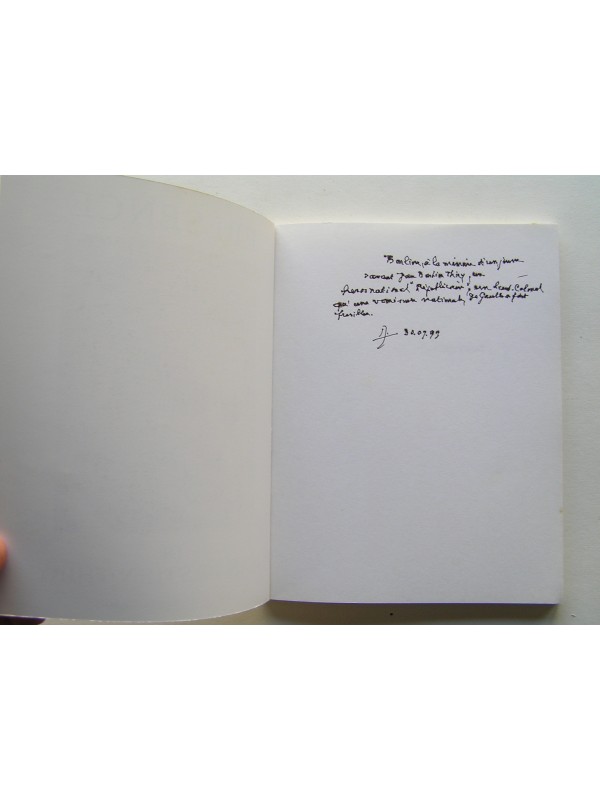 à la mémoire d'un jeune
savant Jean Bastien Thiry, un
heros national "Républicain", un Lieut-Colonel
qu'une vermine nationale, De Gaulle a fait
fusiller.
30.07.99